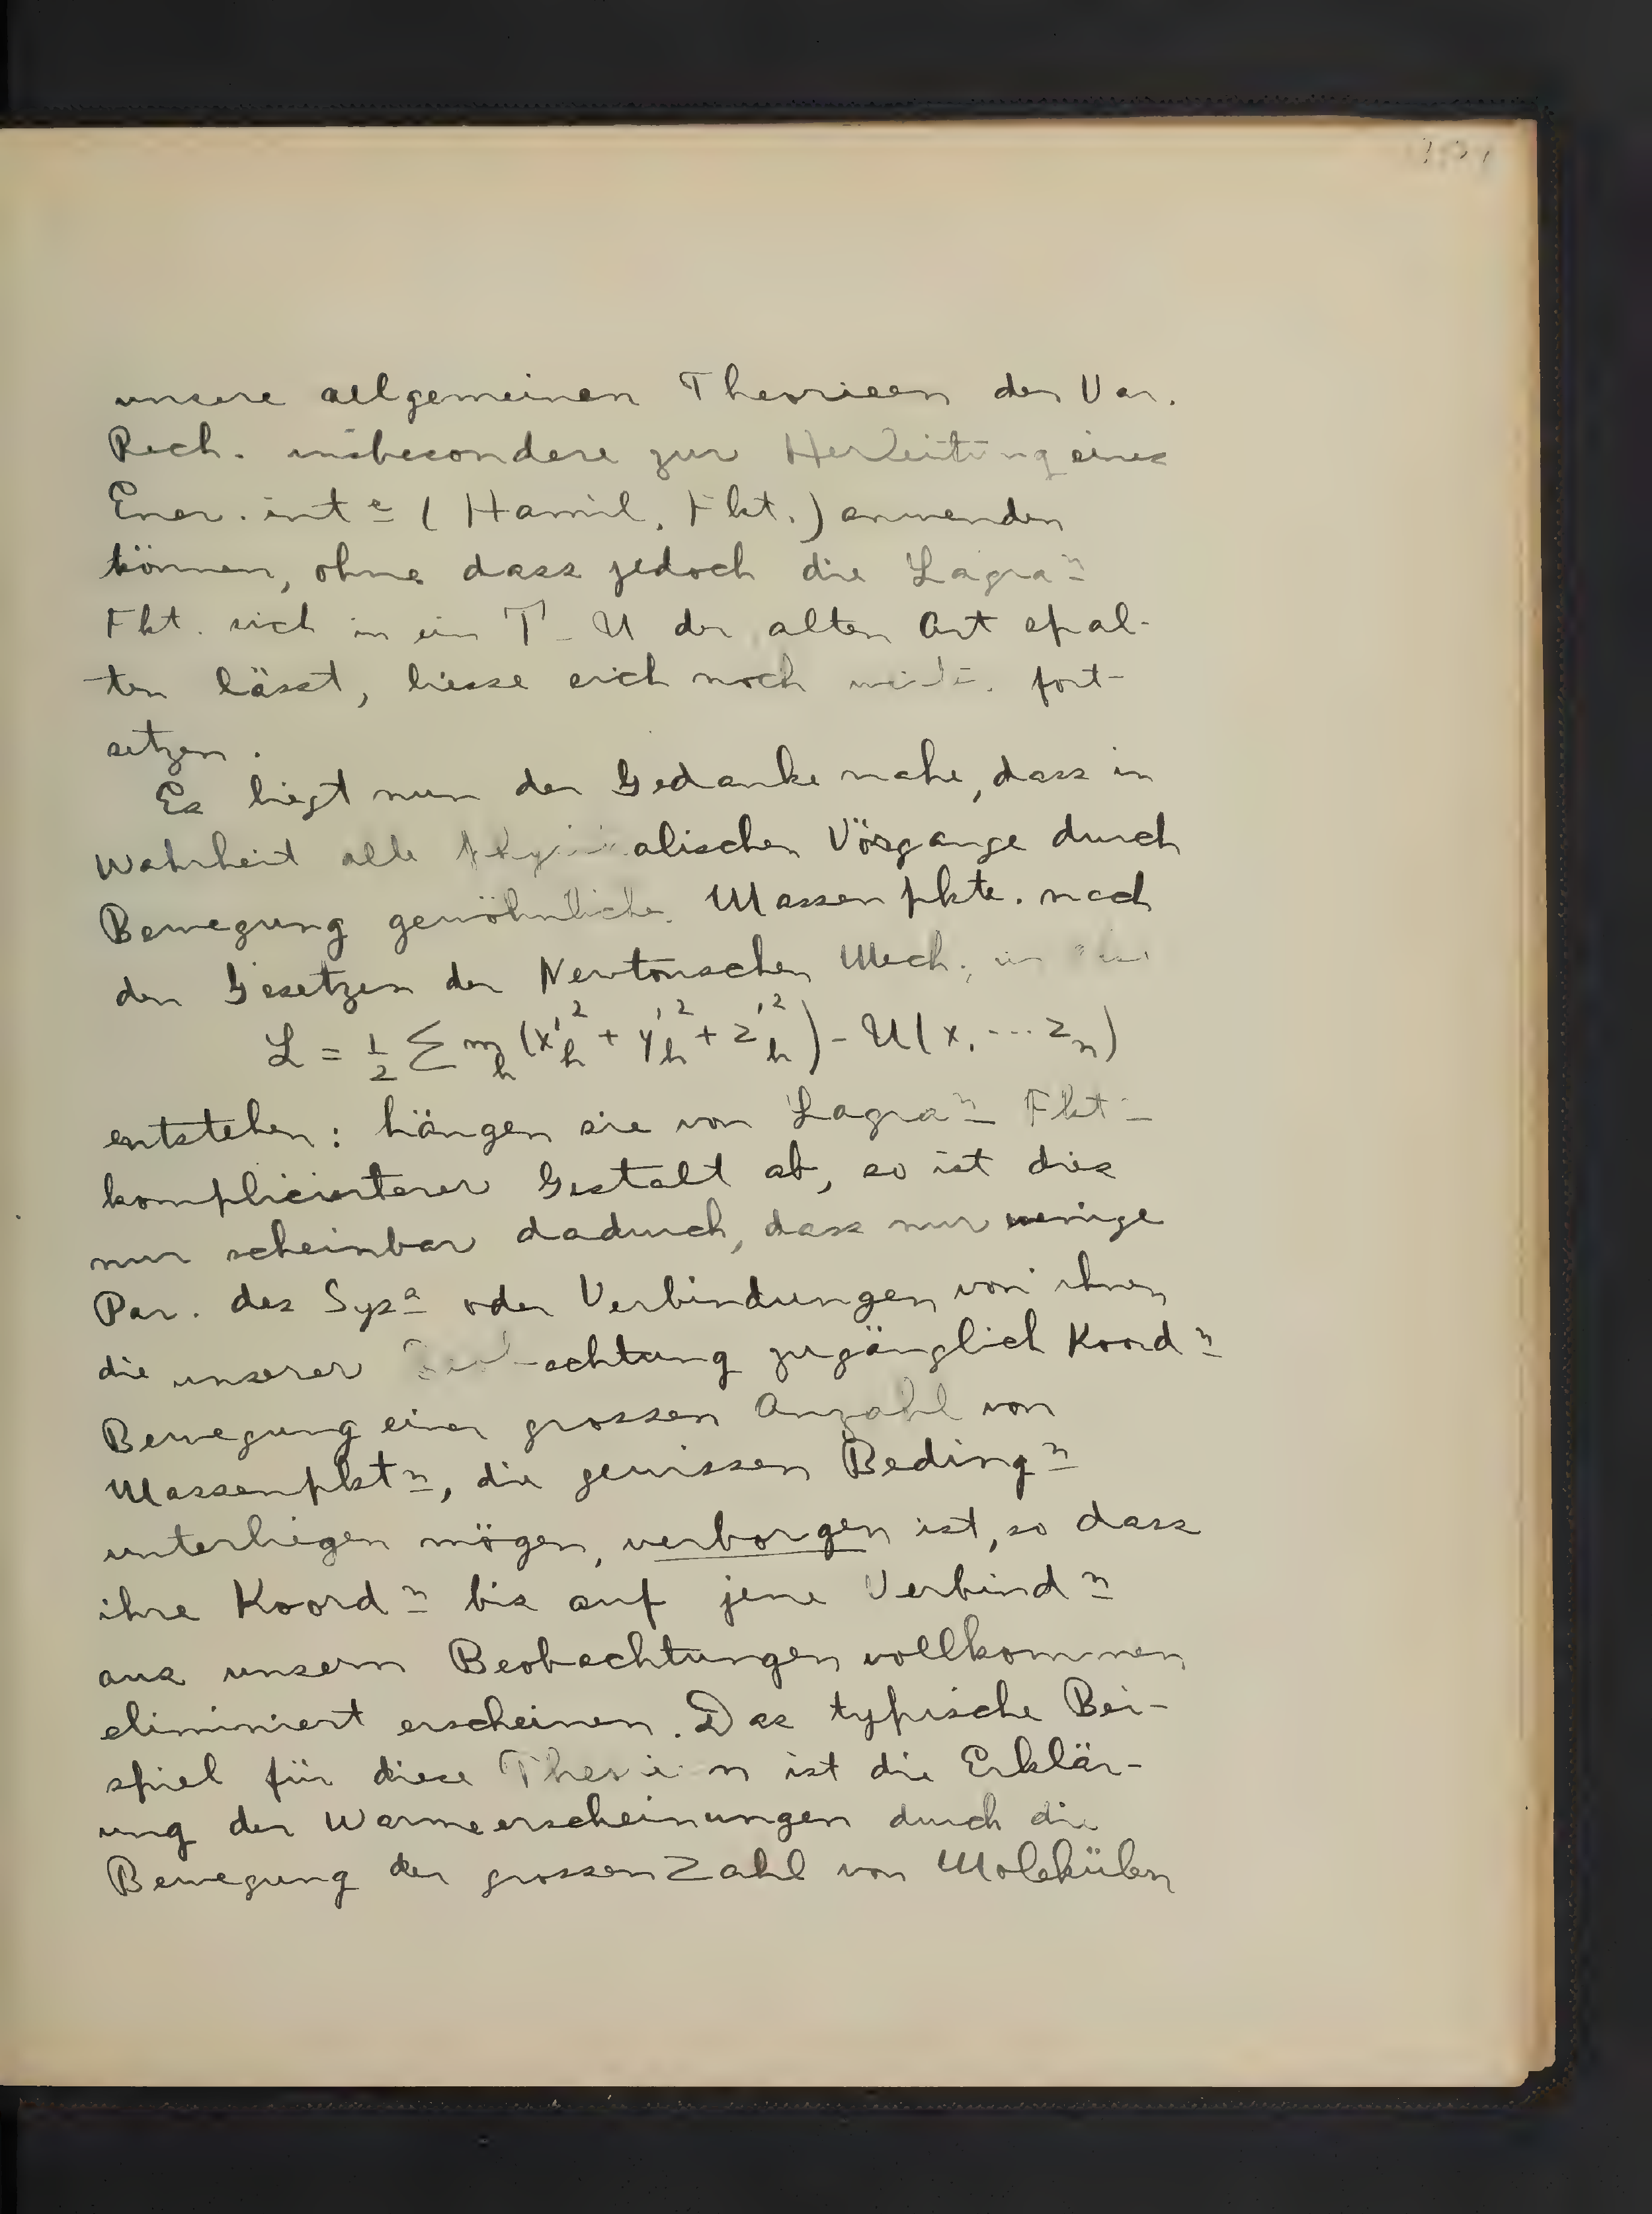 unsere allgemeinen Theorieen der Var.
Rech. insbesondere zur Herleitung eines
Ener. int e (Hamil. Fkt.) anwenden
können, ohne dass jedoch die Lagra n
Fkt. sich in ein T-U der alten Art spal-
ten lässt, liesse sich noch fort-
setzen.
Es liegt nun der Gedanke nahe, dass in
Wahrheit alle physikalischen Vörgange durch
Bewegung gewöhnliche Massenpkte. nach
den Gesetzen der Newtonschen Mech.
L = 1/2 Σ m_h (x'_h² + y'_h² + z'_h²) - U(x, ... z_n)
entstehen: hängen sie von Lagra n Fkt n
komplicierterer Gestalt ab, so ist dies
nur scheinbar dadurch, dass nur wenige
Par. des Sys s oder Verbindungen von ihnen
die unserer Beobachtung zugänglich Koord n
Bewegung einer grossen Anzahl von
Massenpkt n, die gewissen Beding n
unterliegen mögen, verborgen ist, so dass
ihre Koord n bis auf jene Verbind n
aus unsern Beobachtungen vollkommen
eliminiert erscheinen. Das typische Bei-
spiel für diese Theorien ist die Erklär-
ung der Warmeerscheinungen durch die
Bewegung der grossen Zahl von Molekülen